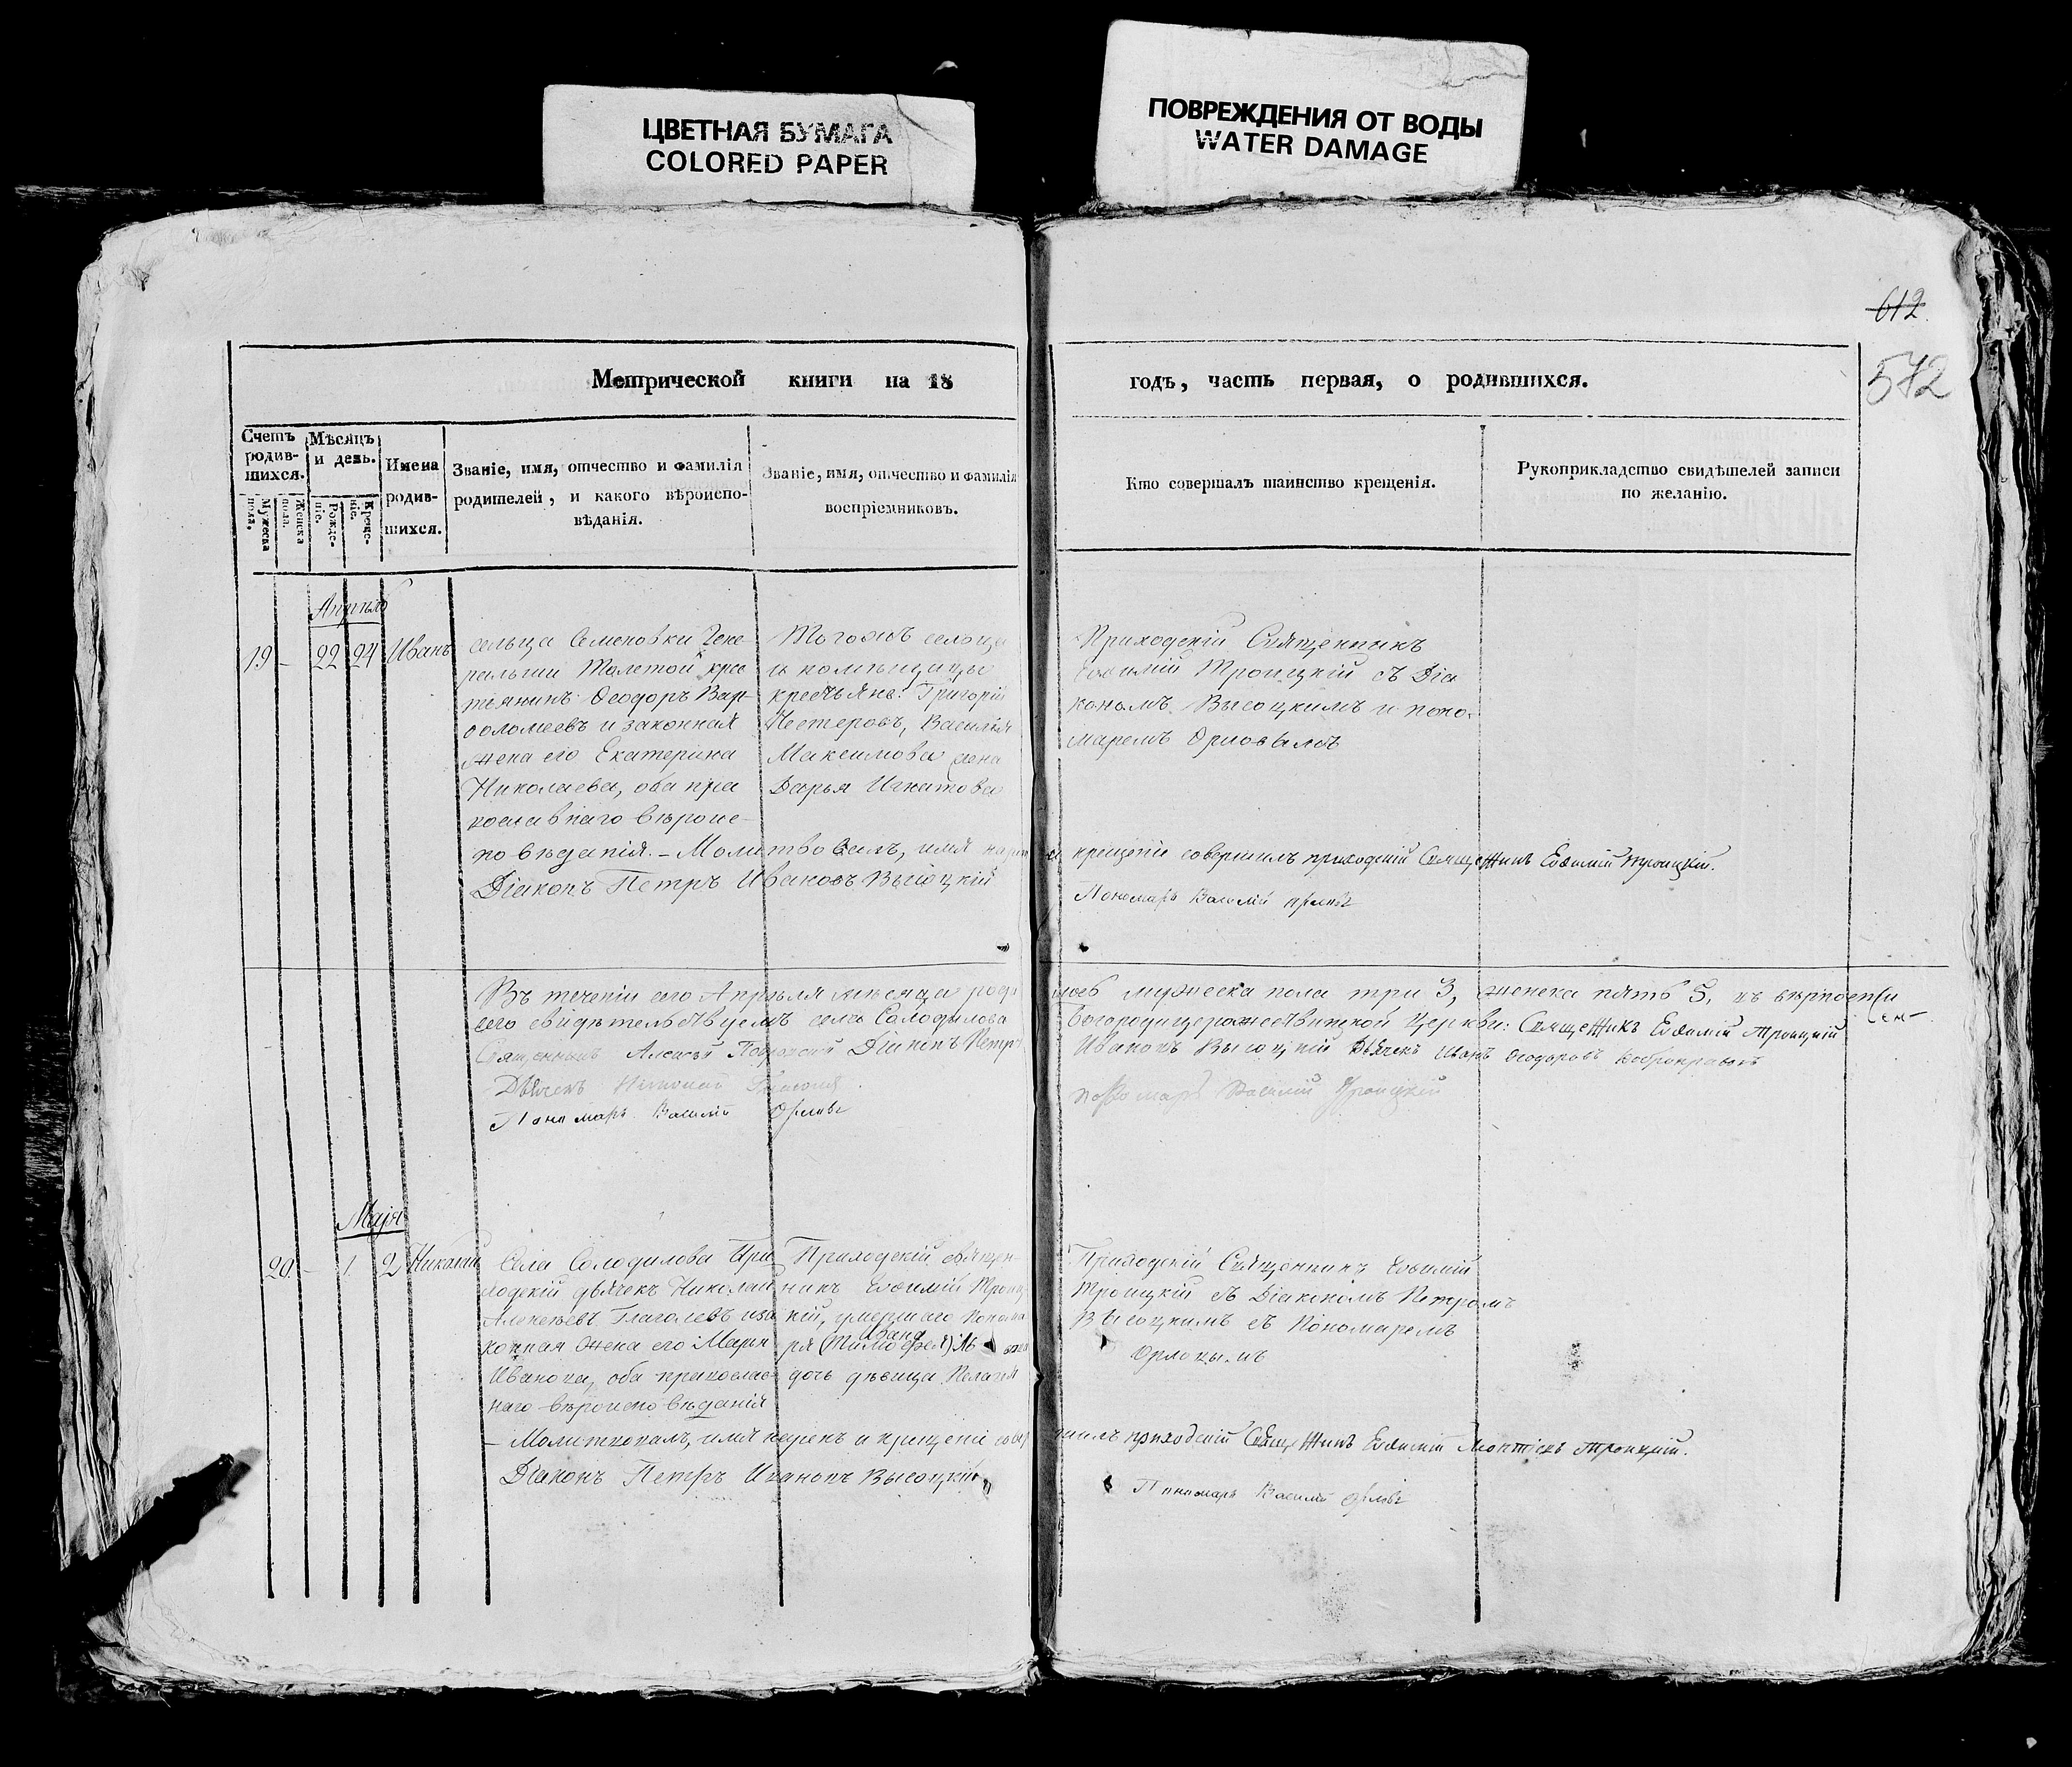 ЦВЕТНАЯ БУМАГА
COLORED PAPER
ПОВРЕЖДЕНИЯ ОТ ВОДЫ
WATER DAMAGE
612
572
Метрической книги на 18
годъ, часть первая, о родившихся.
Счетъ родив-шихся.
Мужеска пола.
Женска пола.
Мѣсяцъ и день.
Рожде-нiе.
Креще-нiе.
Имена родив-шихся.
Званiе, имя, отчество и фамилiя
родителей, и какого вѣроиспо-
вѣданiя.
Званiе, имя, отчество и фамилiя
воспрiемниковъ.
Кто совершалъ таинство крещенiя.
Рукоприкладство свидѣтелей записи
по желанiю.
19 - 22 24 Иванъ
сельца Семеновки Гене
ральши Толстой крес
тьянинъ Ѳеодоръ Вар-
ѳоломеевъ и законная
жена его Екатерина
Николаева, оба пра
вославнаго вѣроис-
повѣданiя. - Молитвовалъ, имя
Дiаконъ Петръ Ивановъ Высоцкiй
Тогожъ сельца
и помѣщицы
крестьяне: Григорiй
Нестеровъ, Василiя
Максимова жена
Дарья Игнатова
Приходскiй Священникъ
Евѳимiй Троицкiй съ Дiа
кономъ Высоцкимъ и поно-
маремъ Орловымъ
крещенiе совершилъ приходскiй Священникъ Евѳимiй Троицкiй.
Пономарь Василiй Орловъ
Въ теченiи сего Апрѣля мѣсяца роди
лось мужеска пола три 3, женска пять 5, въ вѣрности
сего свидѣтельствуемъ села Солодилова
Богородицерождественской Церкви: Священникъ Евѳимiй Троицкiй
Священникъ Алексѣй Дiаконъ Петръ
Ивановъ Высоцкiй Дьячекъ Иванъ Ѳеодоровъ
Дьячекъ Николай
Пономарь Василiй Троицкiй
Пономарь Василiй Орловъ
Маiя
20 - 1 2 Николай
Села Солодилова При
ходскiй дьячекъ Николай
Алексѣевъ Глаголевъ и за
конная жена его Марья
Иванова, оба православ
наго вѣроисповѣданiя
- Молитвовалъ, имя нарекъ и крещенiе совер
Дiаконъ Петръ Ивановъ Высоцкiй
Приходскiй священ-
никъ Евѳимiй Троиц
кiй, умершаго Понама
Ивана
ря (Тимоѳея)
дочь дѣвица Пелагея
Приходскiй Священникъ Евѳимiй
Троицкiй съ Дiакономъ Петромъ
Высоцкимъ съ Пономаремъ
Орловымъ
шилъ приходскiй Священникъ Евѳимiй Троицкiй.
Пономарь Василiй Орловъ